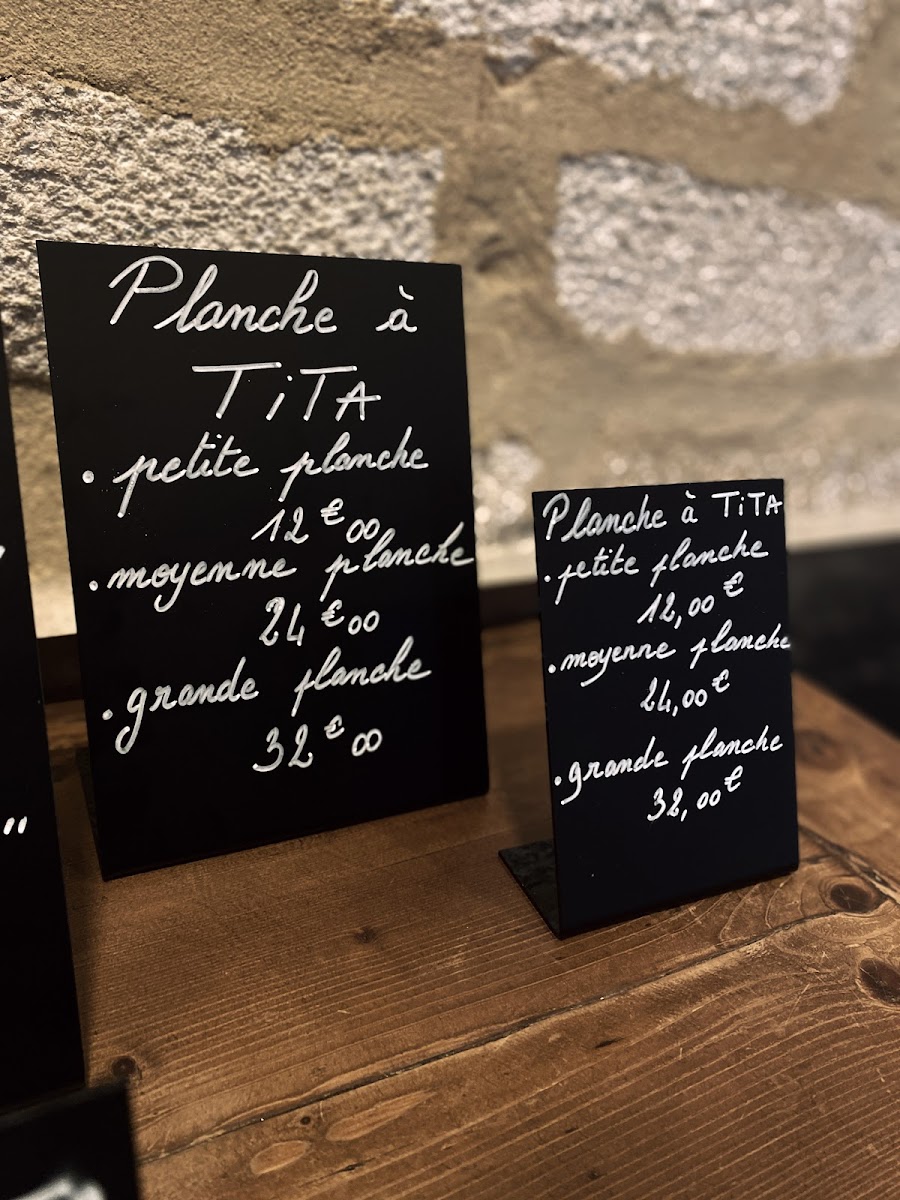 Planche à
TiTA
• petite planche
12€00
• moyenne planche
24€00
• grande planche
32€00
Planche à TiTA
• petite planche
12,00€
• moyenne planche
24,00€
• grande planche
32,00€
"